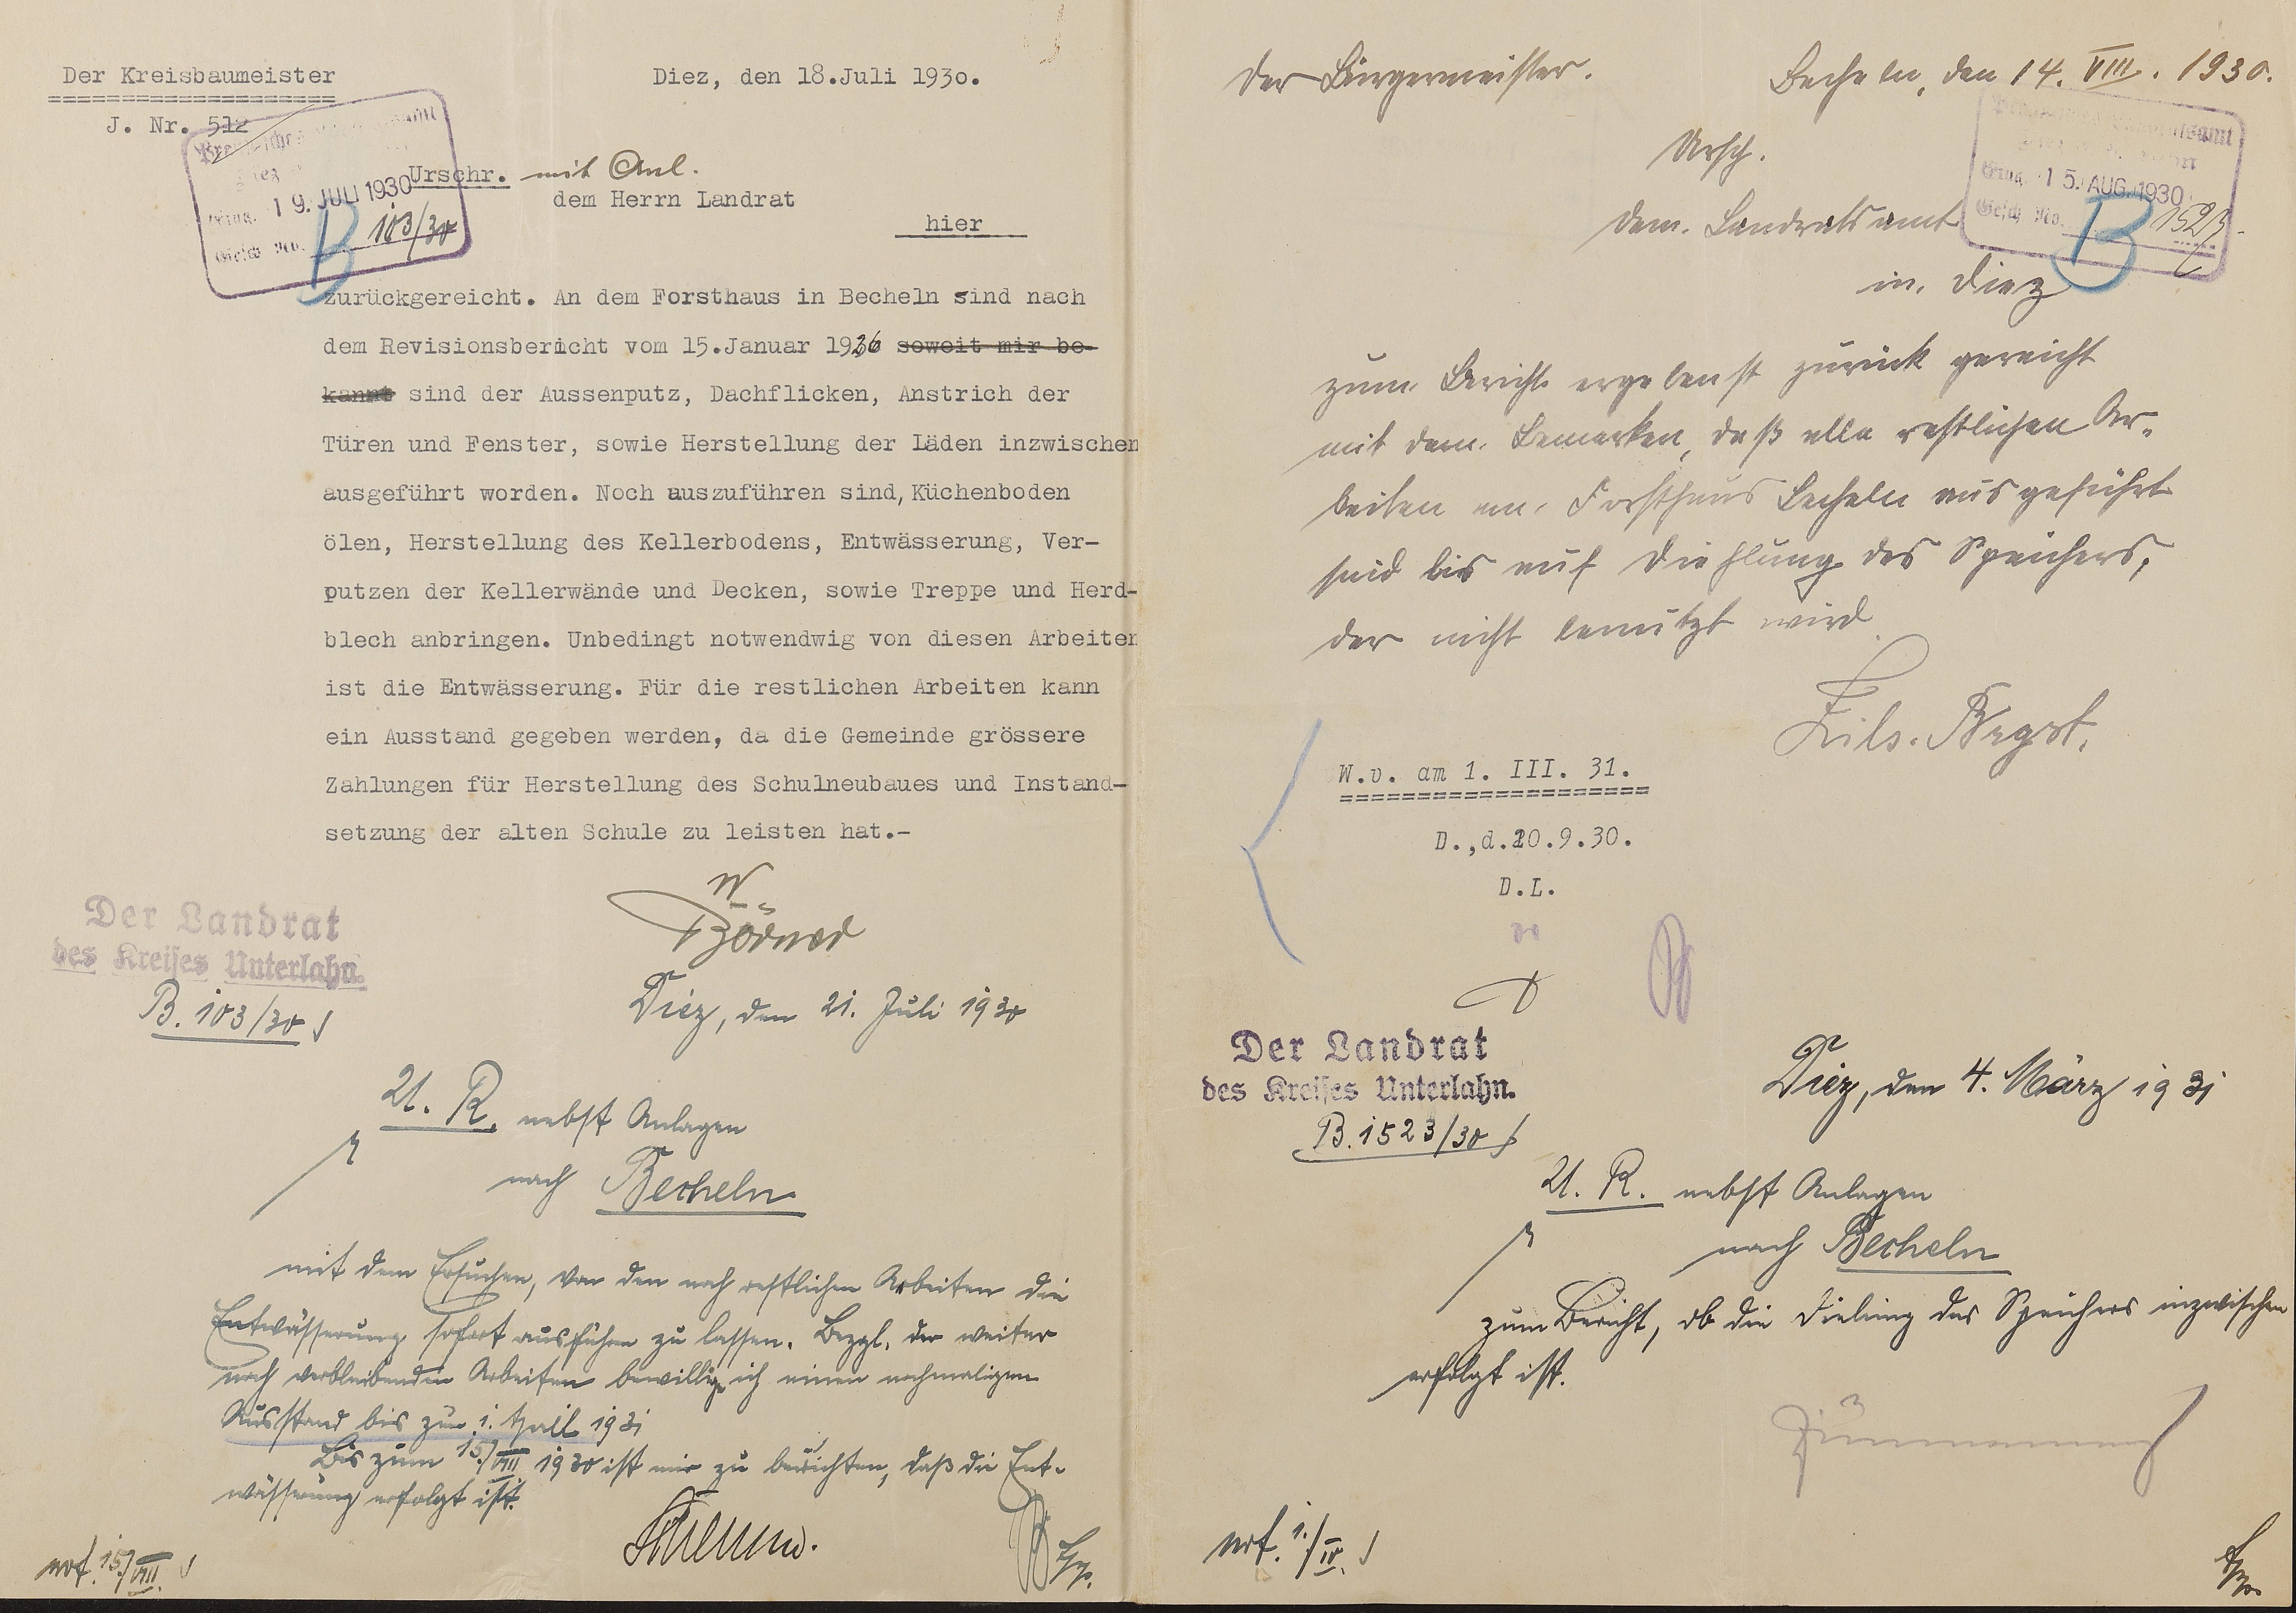 Der Kreisbaumeister
J. Nr. 512
Diez, den 18.Juli 1930.
19. JULI 1930
Gesch. No. 103/30
B
Urschr. mit Anl.
dem Herrn Landrat
hier
zurückgereicht. An dem Forsthaus in Becheln sind nach
dem Revisionsbericht vom 15.Januar 1926 soweit mir be-
kannt sind der Aussenputz, Dachflicken, Anstrich der
Türen und Fenster, sowie Herstellung der Läden inzwischen
ausgeführt worden. Noch auszuführen sind, Küchenboden
ölen, Herstellung des Kellerbodens, Entwässerung, Ver-
putzen der Kellerwände und Decken, sowie Treppe und Herd-
blech anbringen. Unbedingt notwendwig von diesen Arbeiten
ist die Entwässerung. Für die restlichen Arbeiten kann
ein Ausstand gegeben werden, da die Gemeinde grössere
Zahlungen für Herstellung des Schulneubaues und Instand-
setzung der alten Schule zu leisten hat.-
Der Landrat
des Kreises Unterlahn.
B. 103/30
Diez, den 21. Juli 1930
U. R. nebst Anlagen
nach Becheln
mit dem Ersuchen, von den noch restlichen Arbeiten die
Entwässerung sofort ausführen zu lassen. Bezgl. der weiter
noch verbleibenden Arbeiten bewillige ich einen nochmaligen
Ausstand bis zum 1. April 1931
Bis zum 15/VIII 1930 ist mir zu berichten, daß die Ent-
wässerung erfolgt ist.
not. 15/VIII.
Der Bürgermeister.
Becheln, den 14. VIII. 1930.
15. AUG. 1930
Gesch. No. 1523
B
Ursch.
dem Landratsamt
in Diez
zum Bericht ergebenst zurück gereicht
mit dem Bemerken, daß alle restlichen Ar-
beiten am Forsthaus Becheln ausgeführt
sind bis auf Diehlung des Speichers,
der nicht benutzt wird.
Brgst.
W.v. am 1. III. 31.
D.,d.20.9.30.
D.L.
Der Landrat
des Kreises Unterlahn.
B. 1523/30
Diez, den 4. März 1931
U. R. nebst Anlagen
nach Becheln
zum Bericht, ob die Dielung des Speichers inzwischen
erfolgt ist.
not. 1./IV.